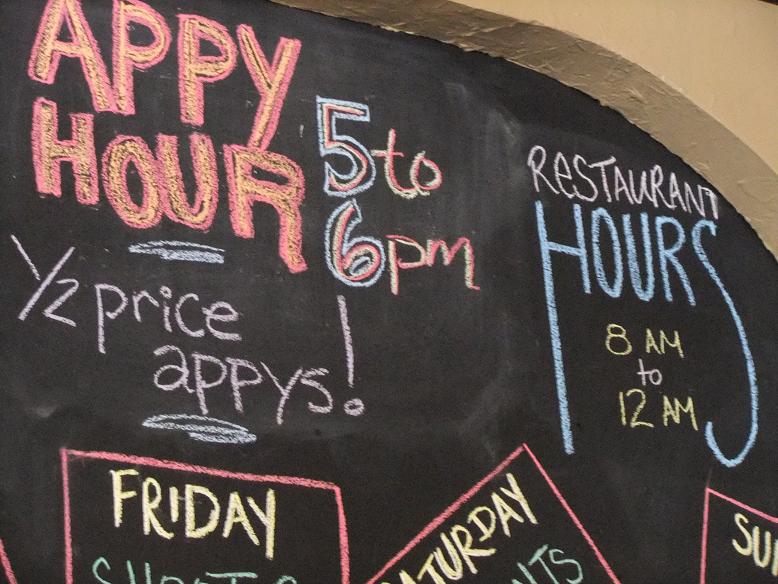 APPY
HOUR
5 to
6pm
1/2 price
appys!
RESTAURANT
HOURS
8 AM
to
12 AM
FRIDAY